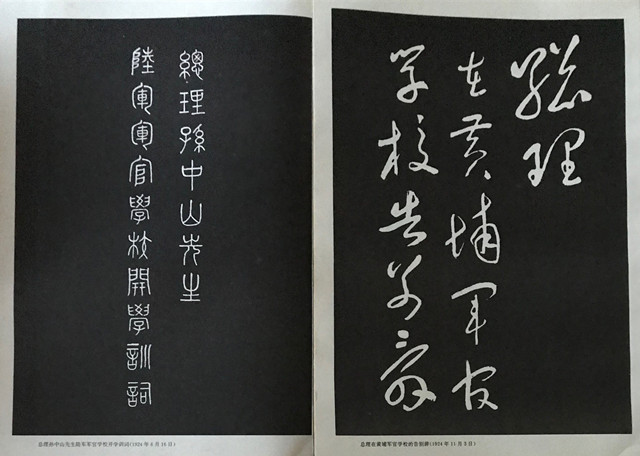 總理孫中山先生
陸軍軍官學校開學訓詞
总理孙中山先生陆军军官学校开学训词(1924年6月16日)
總理
在黄埔軍官
学校告别辞
总理在黄埔军官学校的告别辞(1924年11月3日)